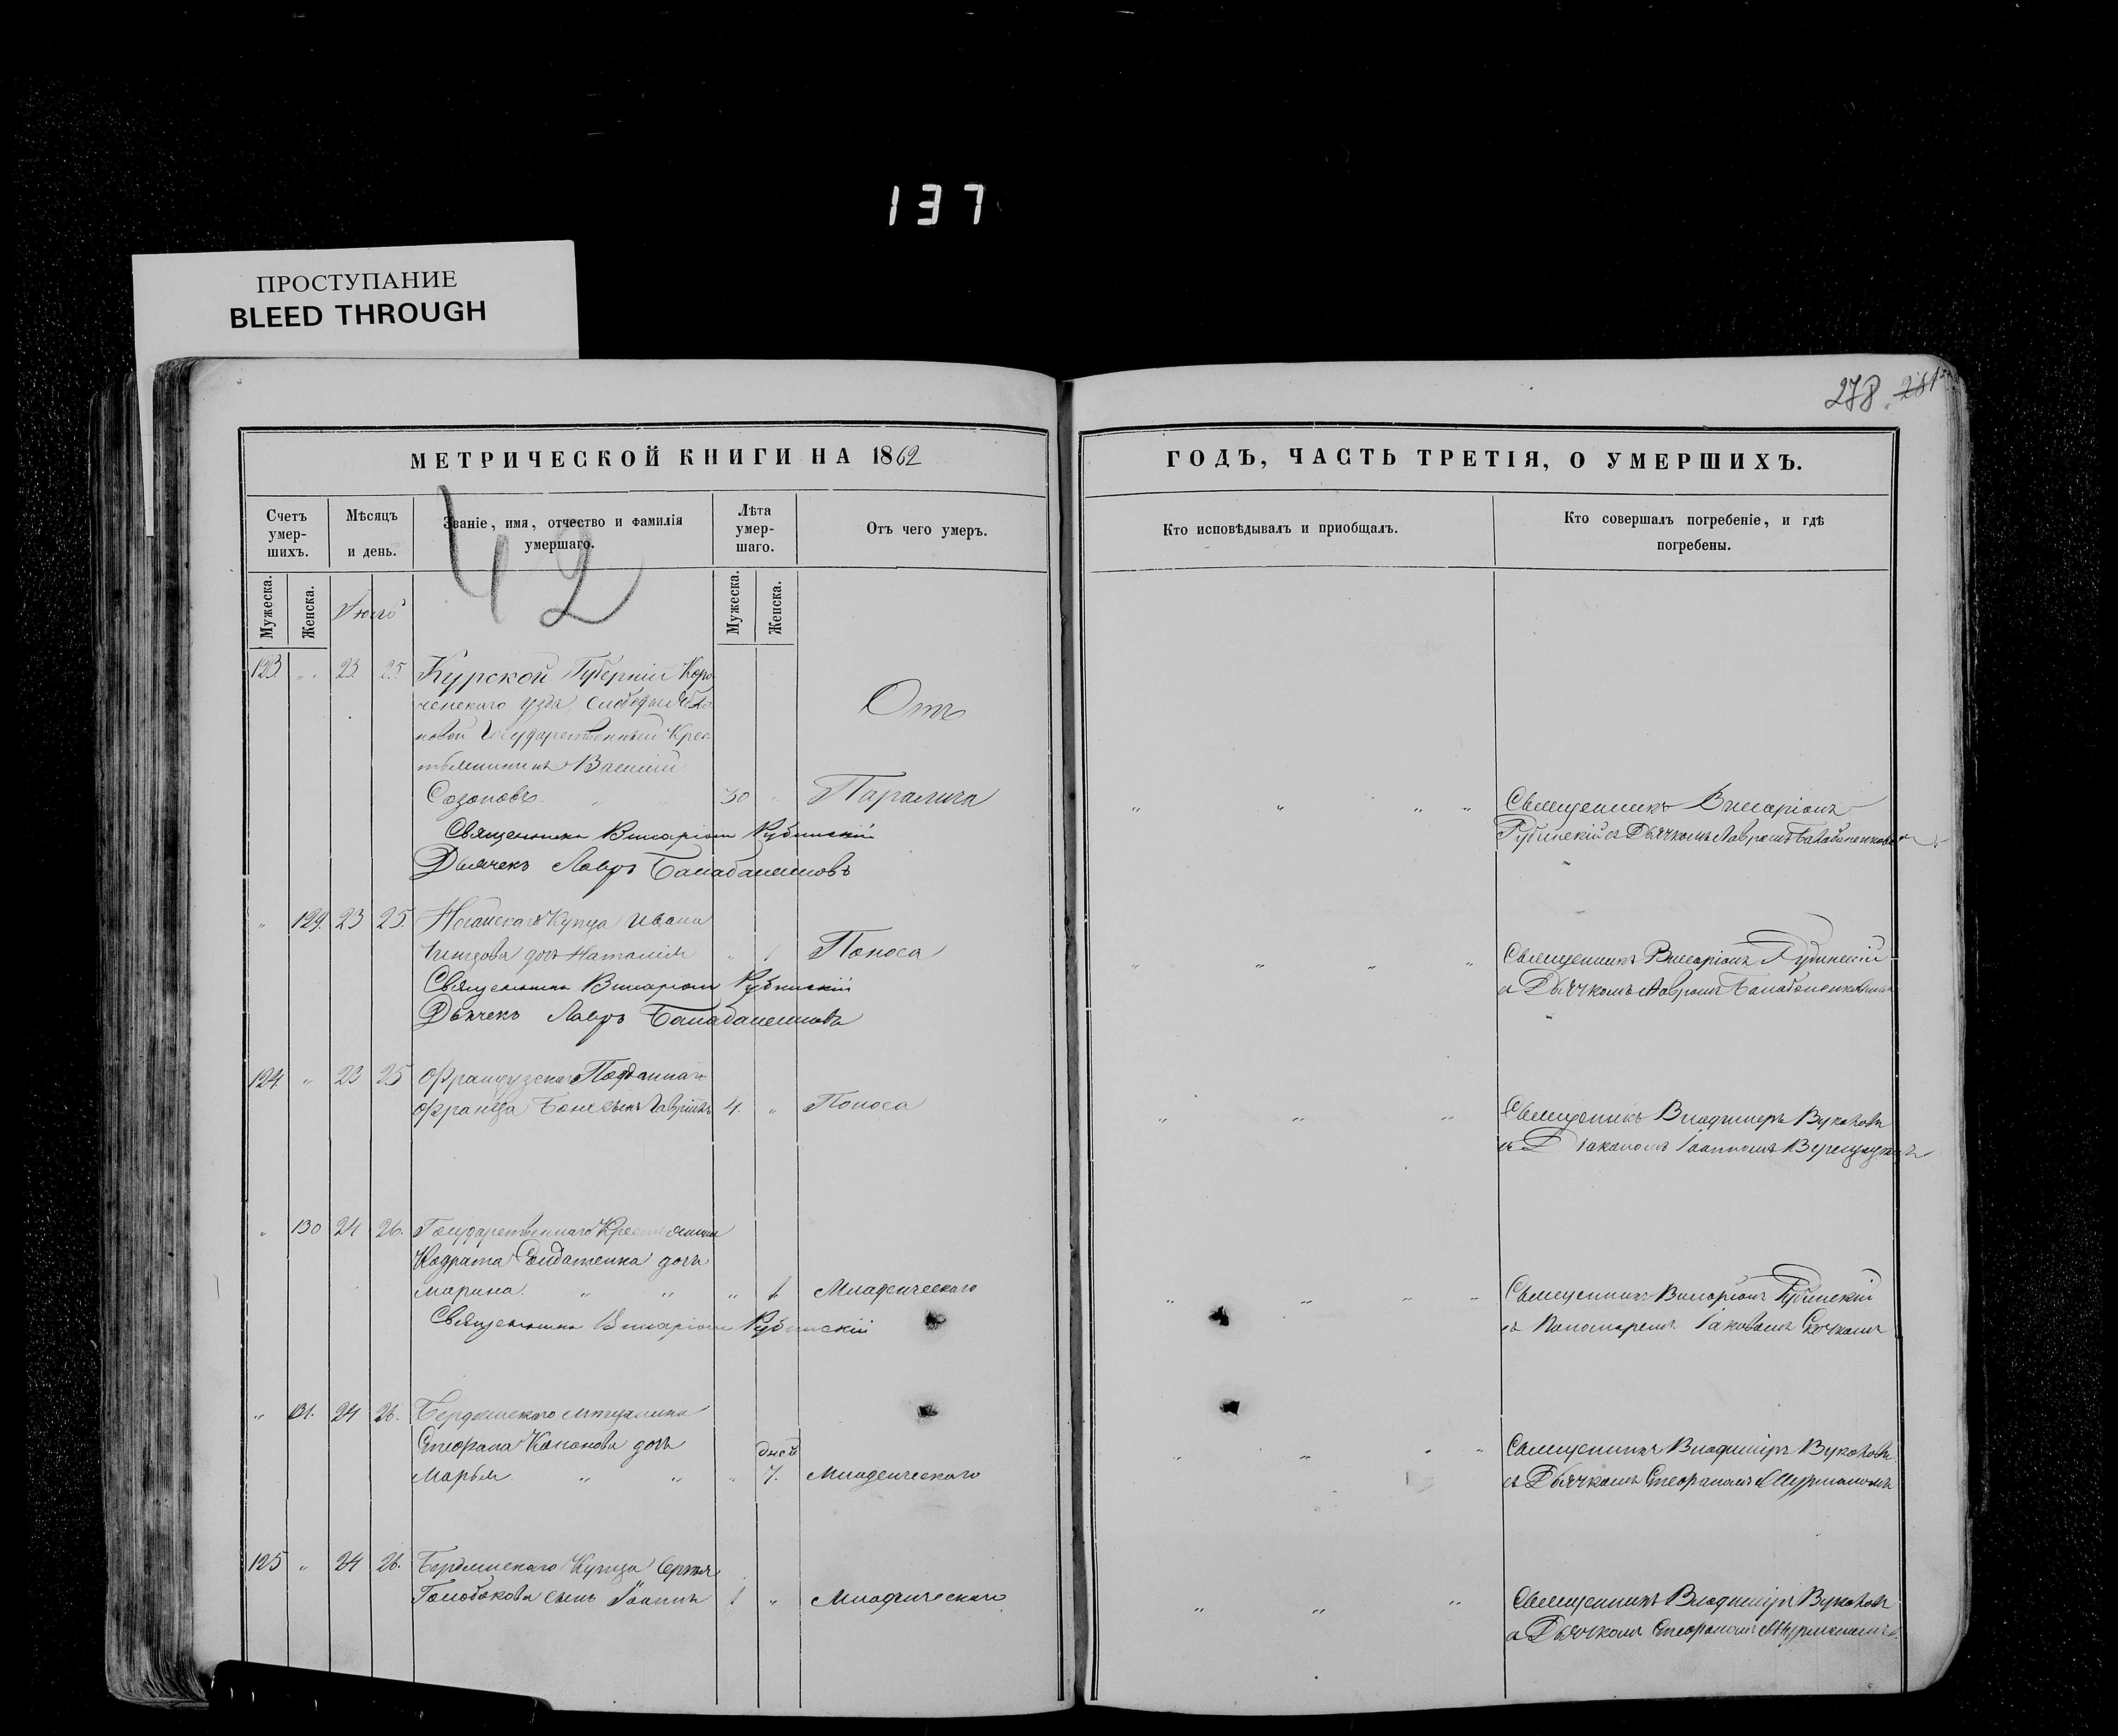 137
ПРОСТУПАНИЕ
BLEED THROUGH
278 281
МЕТРИЧЕСКОЙ КНИГИ НА 1862
ГОДЪ, ЧАСТЬ ТРЕТІЯ, О УМЕРШИХЪ.
Счетъ умер-шихъ.
Мѣсяцъ и день.
Званіе, имя, отчество и фамилія умершаго.
Лѣта умер-шаго.
Отъ чего умеръ.
Кто исповѣдывалъ и приобщалъ.
Кто совершалъ погребеніе, и гдѣ погребены.
Мужеска.
Женска.
Іюль
42
Мужеска.
Женска.
123. „ 23. 25 Курской Губерніи Коро
ченскаго уѣзда, Слободы Ябло
новой Государственный Крес
тьянинъ Василий
Созоновъ 30 „ Отъ Паралича
Священникъ Виссаріонъ
Рубинскій съ Дьячкомъ Лавромъ Балабаненковымъ
Священникъ Виссаріонъ Рубинскій
Дьячекъ Лавръ Балабаненковъ
„ 129. 23 25. Ногайскаго Купца Ивана
дочь Наталія „ 1 Поноса
Священникъ Виссаріонъ Рубинскій
съ Дьячкомъ Лавромъ Балабаненковымъ
Священникъ Виссаріонъ Рубинскій
Дьячекъ Лавръ Балабаненковъ
124. „ 23 25 Французскаго Подданнаго
Франца сынъ Гавріилъ 4. „ Поноса
Священникъ Владимиръ Вуколовъ
съ Діакономъ Іоанномъ
„ 130 24 26. Государственнаго Крестьянина
Кодрата Солдатенка дочь
Марина „ „ „ 1 Младенческаго
Священникъ Виссаріонъ Рубинскій
съ Пономаремъ Іаковомъ
Священникъ Виссаріонъ Рубинскій
„ 131. 24 26. Бердянскаго мѣщанина
Стефана дочь
Марья „ „ „ дней 7. Младенческаго
Священникъ Владиміръ Вуколовъ
съ Дьячкомъ Стефаномъ
125 „ 24 26. Бердянскаго Купца Сергѣя
Голобокова сынъ Іоаннъ 1 „ Младенческаго
Священникъ Владиміръ Вуколовъ
съ Дьячкомъ Стефаномъ